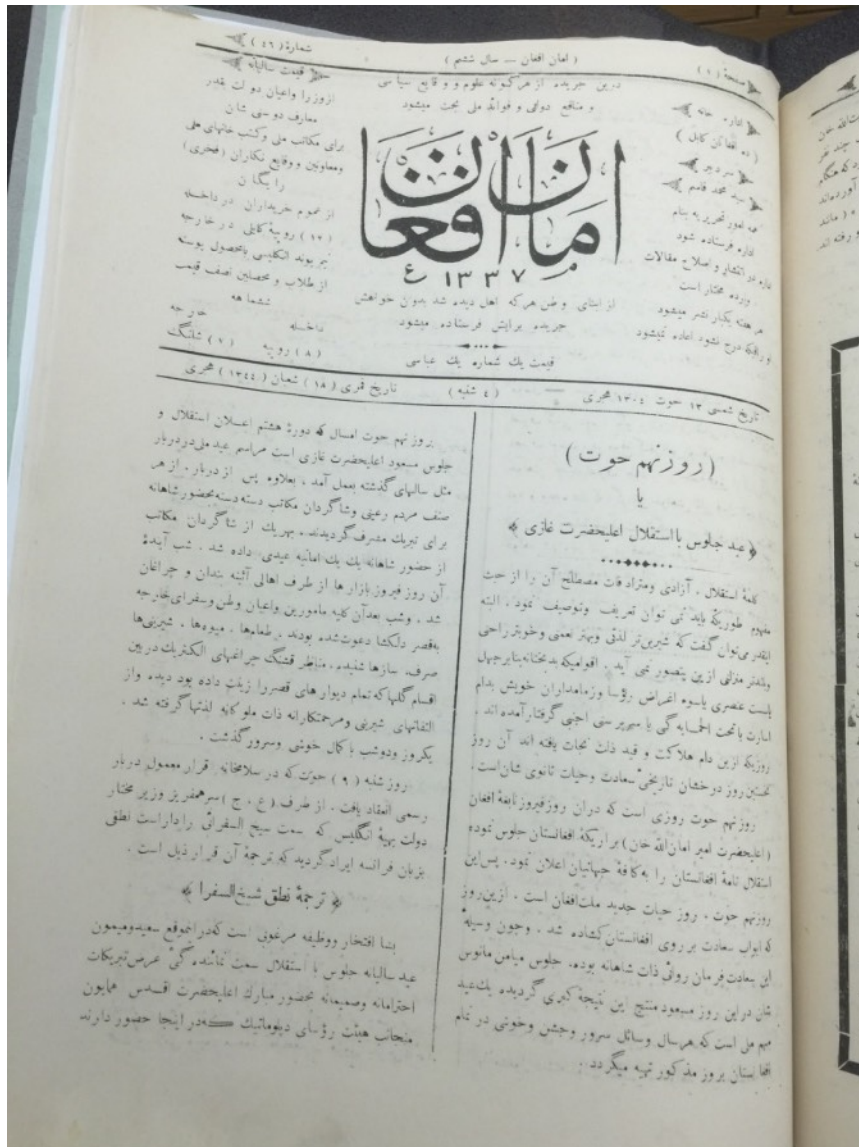 صفحهٔ ( ۱ )
( امان افغان — سال ششم )
شمارهٔ ( ٤٦ )
اداره خانه
( ده افغانان کابل )
سر دبیر
سید محمد قاسم
همه امور تحریر به بنام
اداره فرستاده شود
اداره در انتشار و اصلاح مقالات
وارده مختار است
هر هفته یکبار نشر میشود
اوراقیکه درج نشود اعاده نمیشود
درین جریده از هرگونه علوم و وقایع سیاسی
و منافع دولتی و فوائد ملی بحث میشود
امان افغان
۱۳۳۷ ع
از ابنای وطن هرکه اهل دیده شد بدون خواهش
جریده برایش فرستاده میشود
قیمت یك شماره یك عباسی
قیمت سالیانه
از وزرا واعیان دولت بقدر
معارف دوستی شان
برای مکاتب ملی وکتب خانهای ملی
ومعاونین و وقایع نکاران (فخری)
رایگان
از عموم خریداران در داخله
(۱۲) روپیهٔ کابلی در خارجه
نیم پوند انگلیسی بامحصول پوسته
از طلاب و محصلین نصف قیمت
ششماهه
داخله خارجه
(۸) روپیه (۱) شلنگ
تاریخ شمسی ۱۳ حوت ۱۳۰٤ هجری
( ٤ شنبه )
تاریخ قمری ( ۱۸ ) شعبان ( ۱۳٤٤ ) هجری
( روز نهم حوت )
یا
﴿ عید جلوس بااستقلال اعلیحضرت غازی ﴾
کلمهٔ استقلال ، آزادی ومترادفات مصطلح آن را از حیث
مفهوم طوریکه باید نمی توان تعریف وتوصیف نمود . البته
اینقدر می‌توان گفت که شیرین‌تر لذتی وبهتر نعمتی وخوبتر راحتی
وبلندتر منزلتی ازین بتصور نمی آید . اقوامیکه بدبختانه بنابرجهل
پلست عنصری یاسوء اغراض رؤسا وزمامداران خویش بدام
اسارت یا تحت الحمایه گی یا سرپرستی اجنبی گرفتار آمده اند .
روزیکه ازین دام هلاکت و قید ذلت نجات یافته اند آن روز
نخستین روز درخشان تاریخی سعادت وحیات ثانوی شان است .
روز نهم حوت روزی است که دران روز فیروز نابغهٔ افغان
(اعلیحضرت امیر امان‌الله خان) بر اریکهٔ افغانستان جلوس نموده
استقلال تامهٔ افغانستان را به کافهٔ جهانیان اعلان نمود . پس این
روز نهم حوت ، روز حیات جدید ملت افغان است . ازین روز
که ابواب سعادت بر روی افغانستان کشاده شد . وچون وسیلهٔ
این سعادت فرمان روائی ذات شاهانه بوده، جلوس میامن مانوس
شان دراین روز مسعود منتج این نتیجهٔ کبری گردیده یك عید
مهم ملی است که هرسال وسائل سرور وجشن وخوشی در تمام
افغانستان بروز مذکور تهیه میگردد .
روز نهم حوت امسال که دورهٔ هشتم اعلان استقلال و
جلوس مسعود اعلیحضرت غازی است مراسم عید ملی در دربار
مثل سالهای گذشته بعمل آمد ، بعلاوه پس از دربار ، از هر
صنف مردم رعیتی وشاگردان مکاتب دسته دسته بحضور شاهانه
برای تبریك مشرف گردیدند . بهریك از شاگردان مکاتب
از حضور شاهانه یك یك امانیه عیدی داده شد . شب آیندهٔ
آن روز فیروز بازار ها از طرف اهالی آئینه بندان و چراغان
شد . وشب بعد آن کلیه مامورین واعیان وطن وسفرای خارجه
به‌قصر دلکشا دعوت شده بودند . طعام‌ها ، میوه‌ها ، شیرینی‌ها
صرف، سازها شنیده، مناظر قشنگ چراغهای الکتریك در بین
اقسام گلها که تمام دیوار های قصر را زینت داده بود دیده واز
التفاتهای شیرینی ومرحمتکارانه ذات ملوکانه لذتها گرفته شد .
یکروز ودوشب با کمال خوشی وسرور گذشت .
روز شنبه (۹) حوت که در سلامخانه قرار معمول دربار
رسمی انعقاد یافت . از طرف (ع ، ج) سرهمفریز وزیر مختار
دولت بهیهٔ انگلیس که سمت شیخ السفرائی را داراست نطقی
بزبان فرانسه ایراد گردید که ترجمهٔ آن قرار ذیل است .
﴿ ترجمهٔ نطق شیخ السفرا ﴾
بسا افتخار ووظیفه مرغوبی است که در انموقع سعید ومیمون
عید سالیانه جلوس با استقلال سمت نماینده گی عرض تبریکات
احترامانه وصمیمانه بحضور مبارك اعلیحضرت اقدس همایون
منجانب هیئت رؤسای دیپلوماتیك که در اینجا حضور دارند